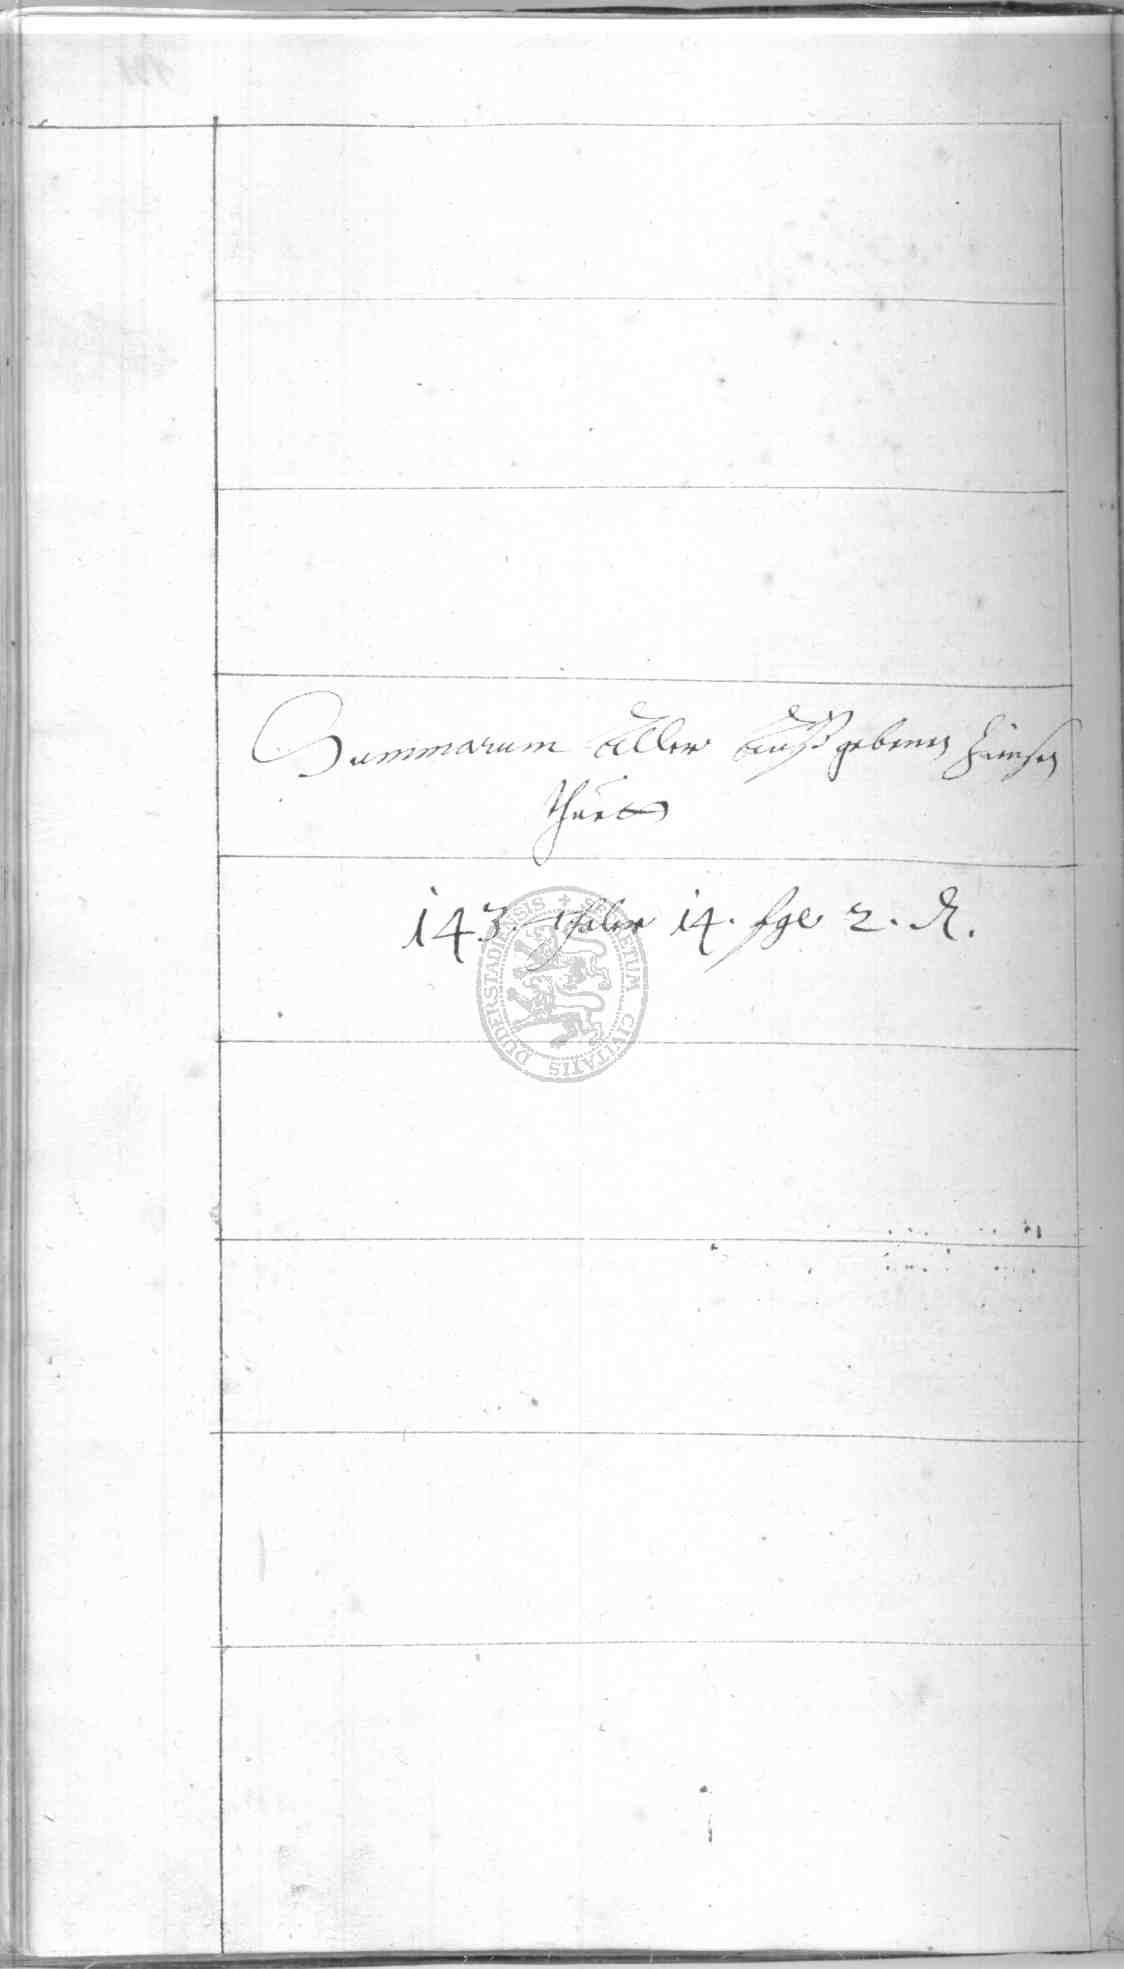 Summarum Aller Außgebenen Zinsen
thuet
143. thaler 14. sgl 2. ₰.
SECRETUM CIVITATIS DUDERSTADIENSIS